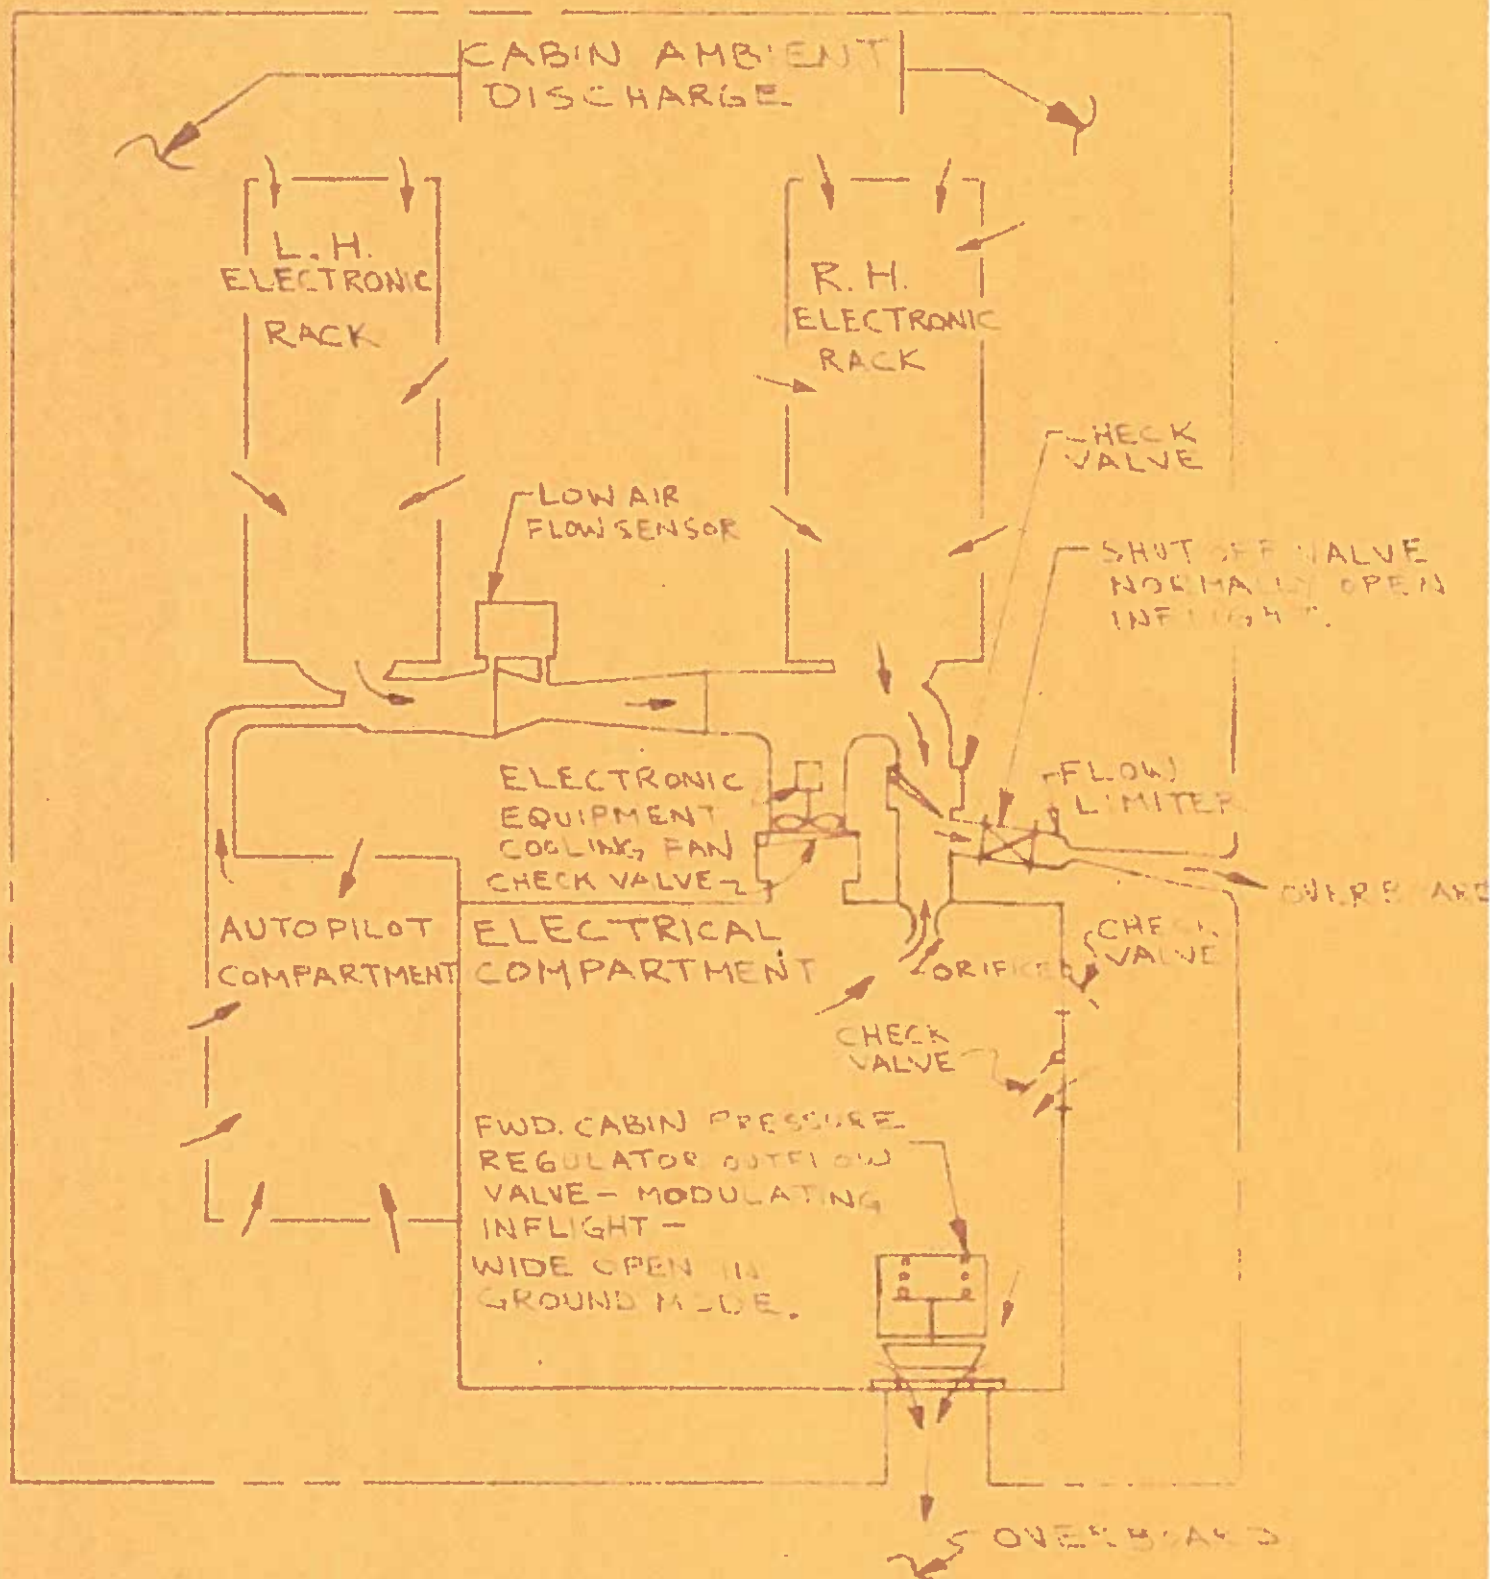 CABIN AMBIENT
DISCHARGE
L.H.
ELECTRONIC
RACK
R.H.
ELECTRONIC
RACK
CHECK
VALVE
LOW AIR
FLOW SENSOR
SHUT OFF VALVE
NORMALLY OPEN
INFLIGHT.
ELECTRONIC
EQUIPMENT
COOLING FAN
CHECK VALVE
FLOW
LIMITER
OVERBOARD
AUTOPILOT
COMPARTMENT
ELECTRICAL
COMPARTMENT
ORIFICE
CHECK
VALVE
CHECK
VALVE
FWD. CABIN PRESSURE
REGULATOR OUTFLOW
VALVE - MODULATING
INFLIGHT -
WIDE OPEN IN
GROUND MODE.
OVERBOARD